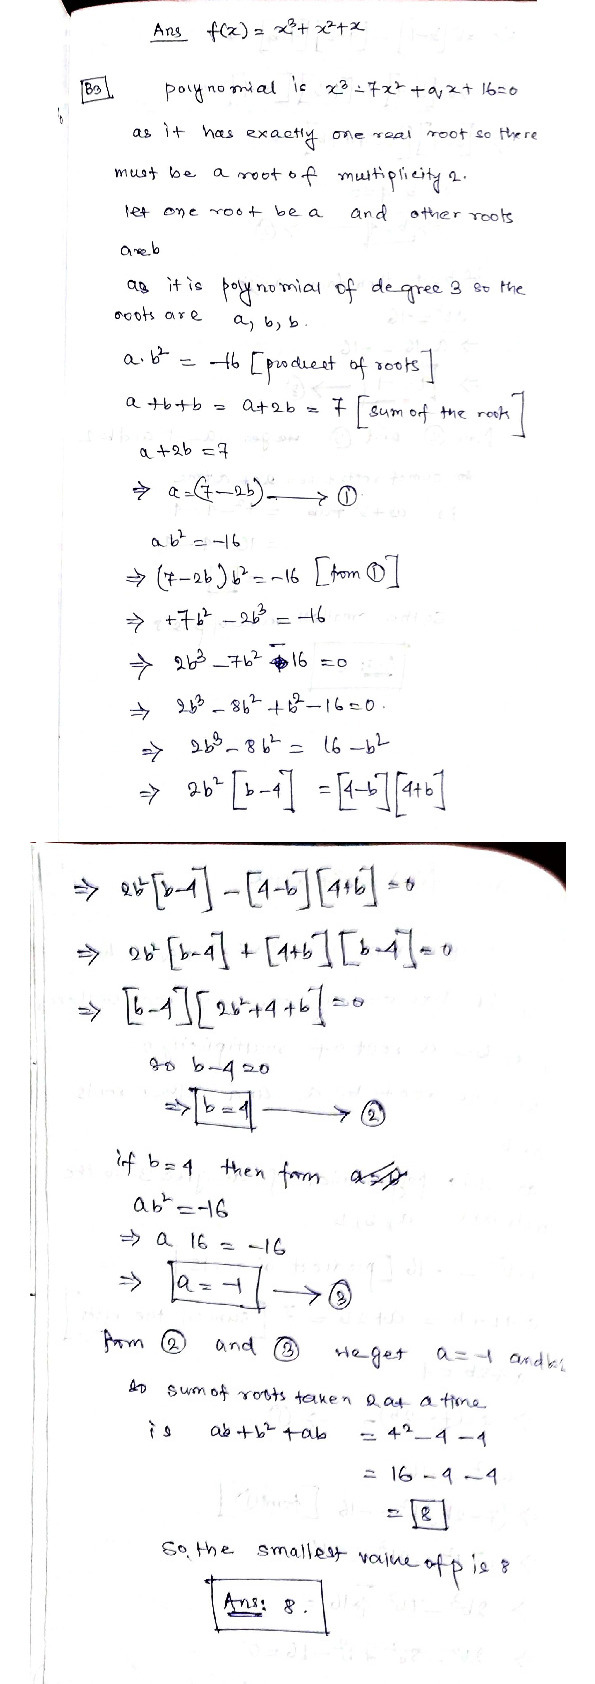 Ans f(x) = x³ + x² + x
B3 polynomial is x³ - 7x² + qx + 16 = 0
as it has exactly one real root so there
must be a root of multiplicity 2.
let one root be a and other roots
are b
as it is polynomial of degree 3 so the
roots are a, b, b.
a.b² = -16 [product of roots]
a + b + b = a + 2b = 7 [sum of the rook]
a + 2b = 7
⇒ a = (7 - 2b) → ①
ab² = -16
⇒ (7 - 2b) b² = -16 [from ①]
⇒ +7b² - 2b³ = -16
⇒ 2b³ - 7b² - 16 = 0
⇒ 2b³ - 8b² + b² - 16 = 0.
⇒ 2b³ - 8b² = 16 - b²
⇒ 2b² [b - 4] = [4 - b] [4 + b]
⇒ 2b² [b - 4] - [4 - b] [4 + b] = 0
⇒ 2b² [b - 4] + [4 + b] [b - 4] = 0
⇒ [b - 4] [2b² + 4 + b] = 0
so b - 4 = 0
⇒ b = 4 → ②
if b = 4 then from
ab² = -16
⇒ a 16 = -16
⇒ a = -1 → ③
from ② and ③ we get a = -1 and
so sum of roots taken 2 at a time
is ab + b² + ab = 4² - 4 - 4
= 16 - 4 - 4
= 8
So, the smallest value of p is 8
Ans: 8.